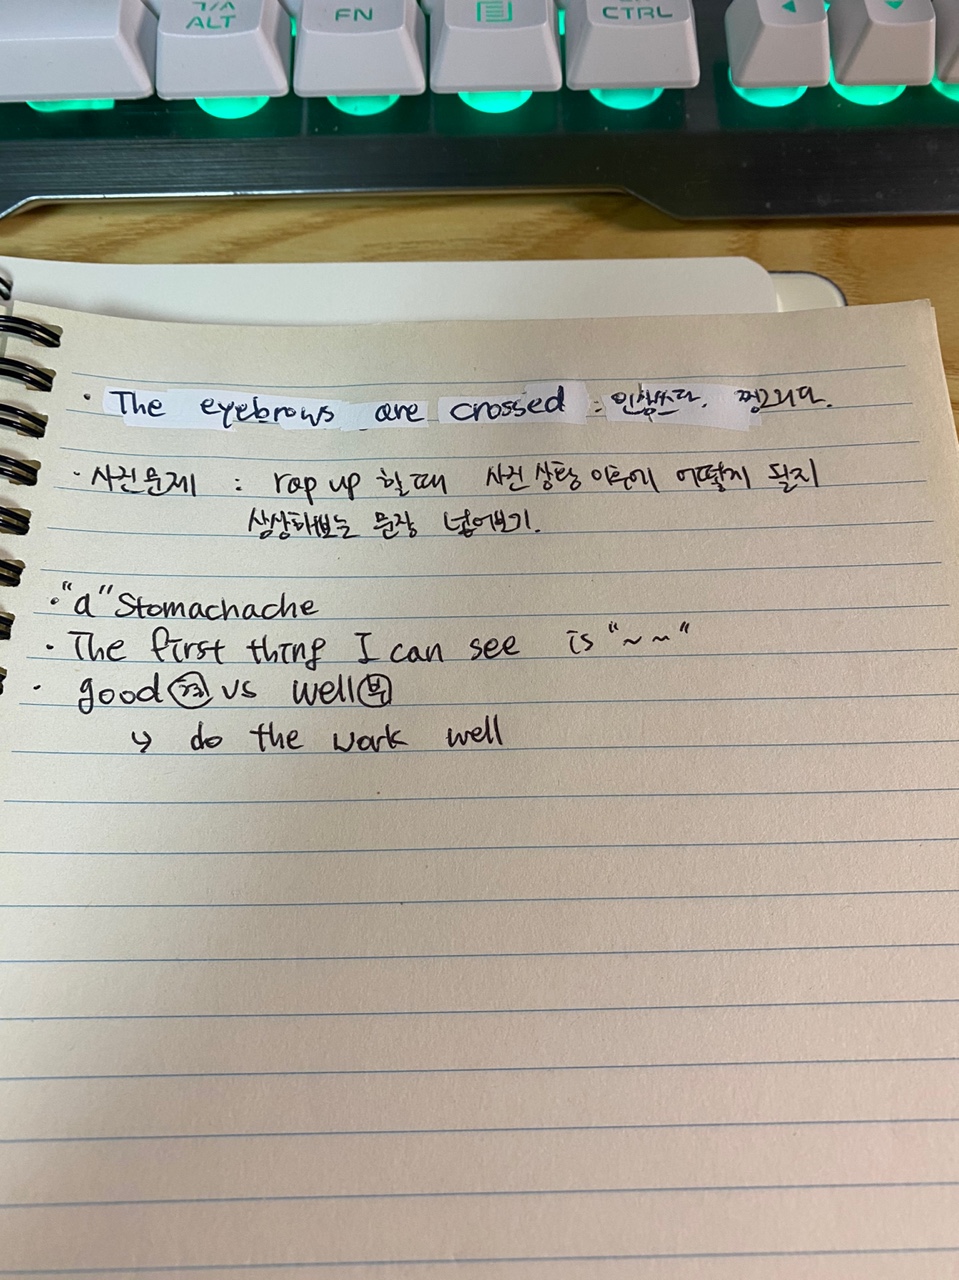 ㄱ/ㅅ
ALT
FN
CTRL
· The eyebrows are crossed : 인상쓰다. 찡그리다.
· 사진문제 : rap up 할때 사진 상황 이후에 어떻게 될지
상상해보는 문장 넣어보기.
· "a" Stomachache
· The first thing I can see is "~~"
· good형 vs well부
↳ do the work well